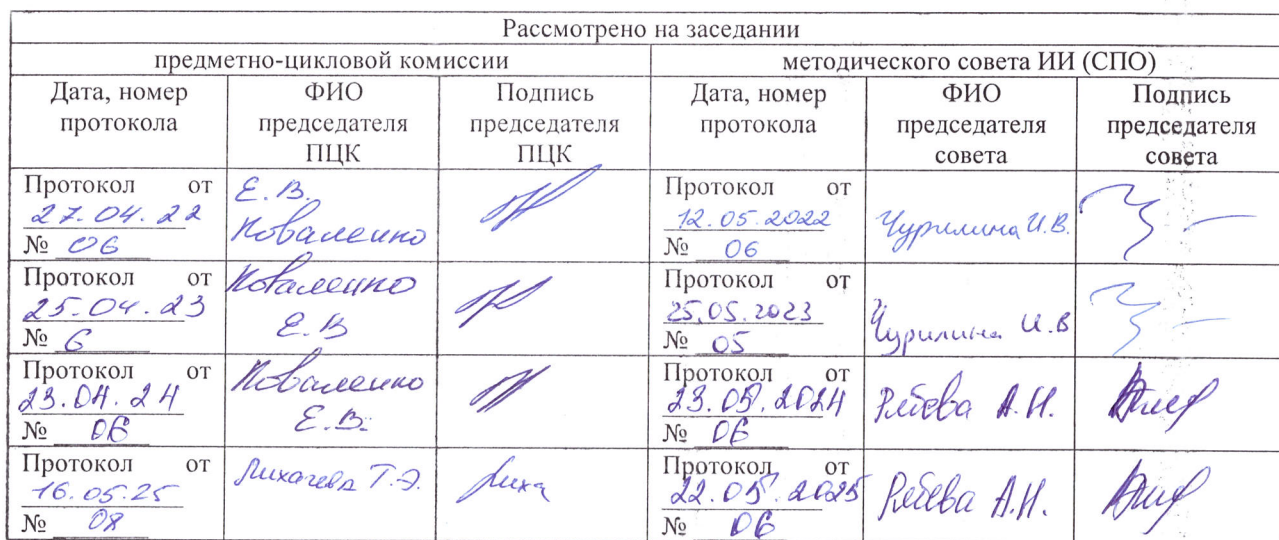 Рассмотрено на заседании
предметно-цикловой комиссии
методического совета ИИ (СПО)
Дата, номер протокола
ФИО председателя ПЦК
Подпись председателя ПЦК
Дата, номер протокола
ФИО председателя совета
Подпись председателя совета
Протокол от
27.04.22
№ 06
Е. В.
Коваленко
Протокол от
12.05.2022
№ 06
Чурилина И.В.
Протокол от
25.04.23
№ 6
Коваленко
Е.В
Протокол от
25.05.2023
№ 05
Чурилина И.В
Протокол от
23.04.24
№ 06
Коваленко
Е.В.
Протокол от
23.05.2024
№ 06
А.Н.
Протокол от
16.05.25
№ 08
Лихачева Т.Э.
Протокол от
22.05.2025
№ 06
А.Н.